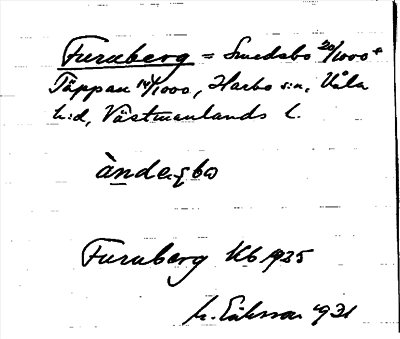 Furuberg = Smedsbo 20/1000 +
Täppan 14/1000, Harbo s:n, Våla
h:d, Västmanlands l.
Furuberg Kb 1935
M. Eriksson 1931